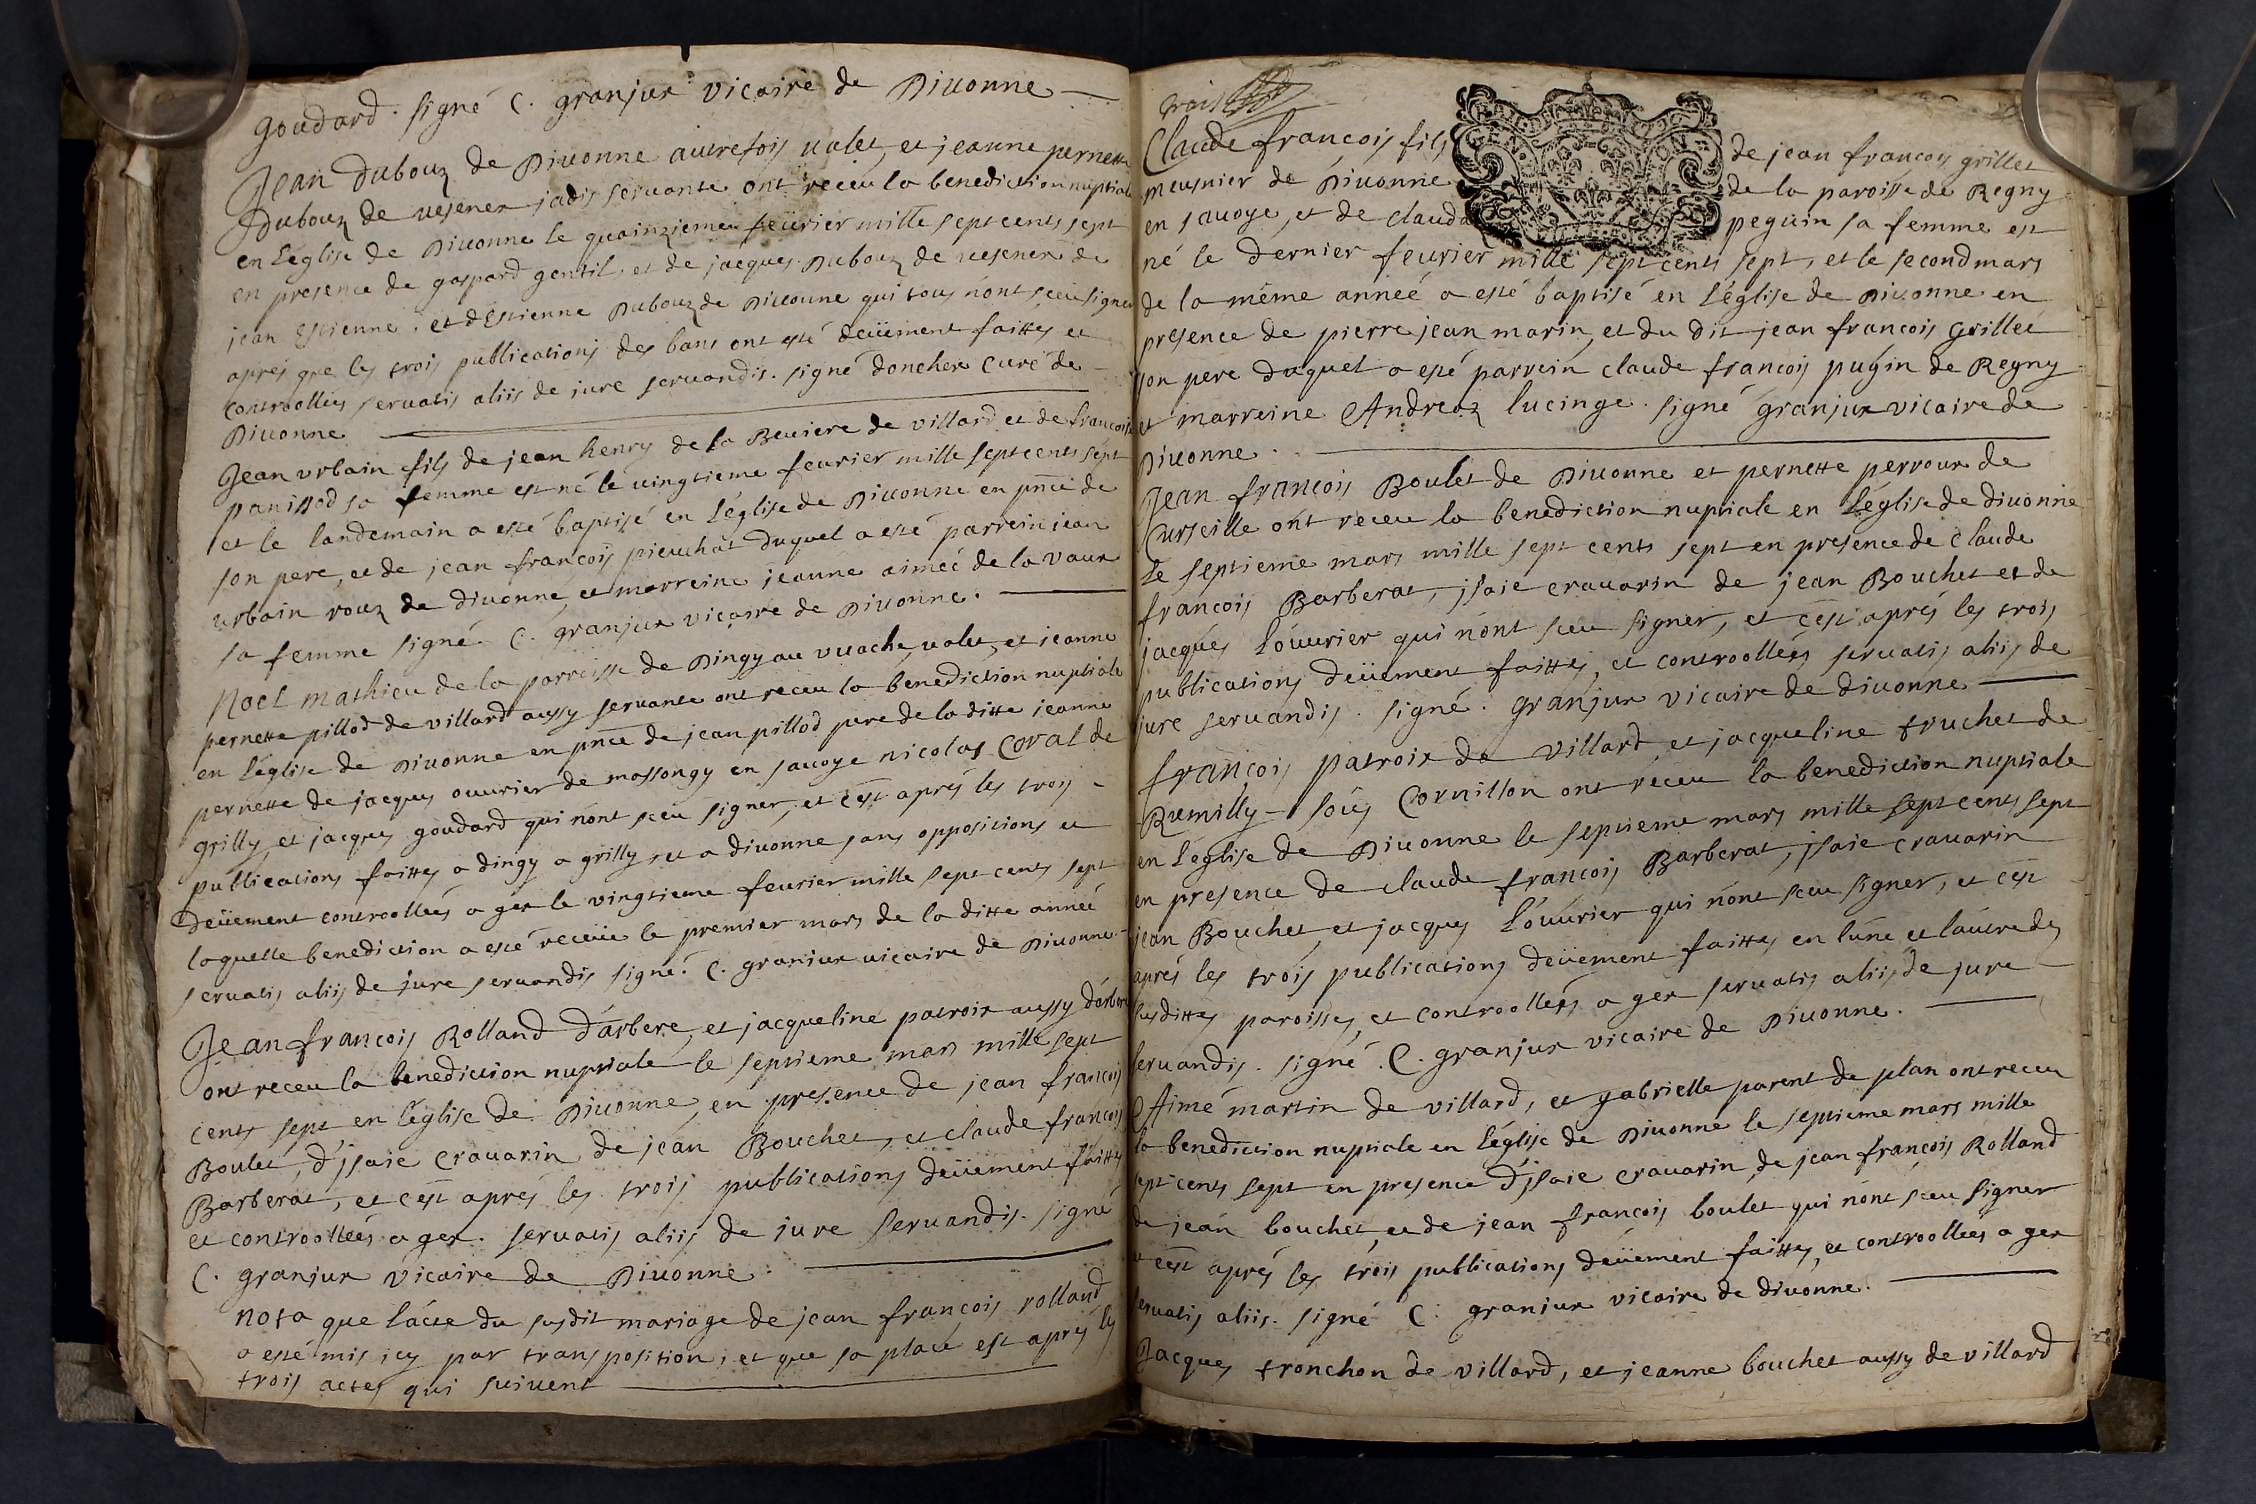 goudard. signé C. granjux vicaire de Diuonne
Jean dubouz de Diuonne autrefois ualet, et jeanne pernette
Dubouz de uesenex jadis seruante ont receu la benediction nuptiale
en l'église de Diuonne le quainzieme feurier mille sept cents sept
en presence de gaspard gentil, et de jacques Dubouz de uesenex de
jean Estienne, et d'Estienne Dubouz de Diuonne qui tous nont sceu signer
aprés que les trois publications des bans ont esté deüement faittes et
controollées seruatis aliis de iure seruandis. signé donchere curé de
Diuonne
Jean vrbain fils de jean henry de la Beuiere de villard et de francoise
panissod sa femme est né le uingtieme feurier mille sept cents sept
et le landemain a esté baptisé en l'église de Diuonne en pnce de
son pere, et de jean francois pieuchat duquel a esté parrein jean
urbain rouz de diuonne, et marreine jeanne aimeé de la vaux
sa femme signé. C. granjux vicaire de Diuonne.
Noel mathieu de la parroisse de Dingy au vuache, ualet, et jeanne
pernette pillod de villard aussy seruante ont receu la benediction nuptiale
en l'église de Diuonne en pnce de jean pillod pere de la ditte jeanne
pernette de jacques ouurier de massongy en sauoye nicolas Coral de
grilly, et jacques goudard qui nont sceu signer, et c'est aprés les trois
publications faittes a dingy a grilly et a diuonne sans oppositions et
deüement controollées a gex le vingtieme feurier mille sept cents sept
laquelle benediction a esté receüe le premier mars de la ditte année
seruatis aliis de jure seruandis signé. C. granjux uicaire de Diuonne.
Jean francois Rolland d'arbere, et jacqueline patroix aussy d'arbere
ont receu la benediction nuptiale le septieme mars mille sept
cents sept en l'église de Diuonne en presence de jean francois
Boulet, d'jsaie crauarin de jean Bouchet, et claude francois
Barberat, et c'est aprés les trois publications deüement faittes
et controolleés a gex. seruatis aliis de iure seruandis. signé
C. granjux vicaire de Diuonne.
nota que l'acte du susdit mariage de jean françois rolland
a esté mis icy par transposition, et que sa place est aprés les
trois actes qui suiuent
trois
Claude francois fils de jean francois grillet
meusnier de Diuonne de la paroisse de Regny
en sauoye, et de clauda peguin sa femme est
né le dernier feurier mille sept cents sept, et le second mars
de la même anneé a esté baptisé en l'église de Diuonne en
presence de pierre jean marin, et du dit jean francois grillet
son pere duquel a esté parrein claude francois pugin de Regny
et marreine Andreaz lucinge. signé granjux vicaire de
Diuonne.
Jean françois Boulet de Diuonne et pernette perroux de
Curseille ont receu la benediction nuptiale en l'église de diuonne
le septieme mars mille sept cents sept en presence de claude
francois Barberat, jsaie crauarin de jean Bouchet et de
jacques l'ouurier qui n'ont sceu signer, et c'est aprés les trois
publications deüement faittes, et controolleés seruatis aliis de
jure seruandis. signé. granjux vicaire de diuonne
françois patroix de villard et jacqueline truchet de
Rumilly - sous Cornillon ont receu la benediction nuptiale
en l'église de Diuonne le septieme mars mille sept cents sept
en presence de claude françois Barberat, jsaie crauarin
jean Bouchet, et jacques l'ouurier qui n'ont sceu signer, et c'est
aprés les trois publications deüement faittes en l'une et l'autre des
susdittes paroisses, et controolleés a gex seruatis aliis de jure
seruandis. signé. C. granjux vicaire de Diuonne.
Aimé martin de villard, et gabrielle parent de plan ont receu
la benediction nuptiale en l'église de Diuonne le septieme mars mille
sept cents sept en presence d'jsaie crauarin, de jean françois Rolland
de jean bouchet, et de jean françois boulet qui n'ont sceu signer
et c'est aprés les trois publications deüement faittes, et controolleés a gex
seruatis aliis. signé C. granjux vicaire de diuonne.
Jacques tronchon de villard, et jeanne bouchet aussy de villard